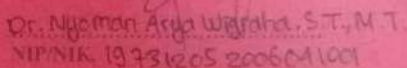 Dr. Nyoman Arya Wigraha, S.T., M.T.
NIP/NIK. 19731205 200604 1 001